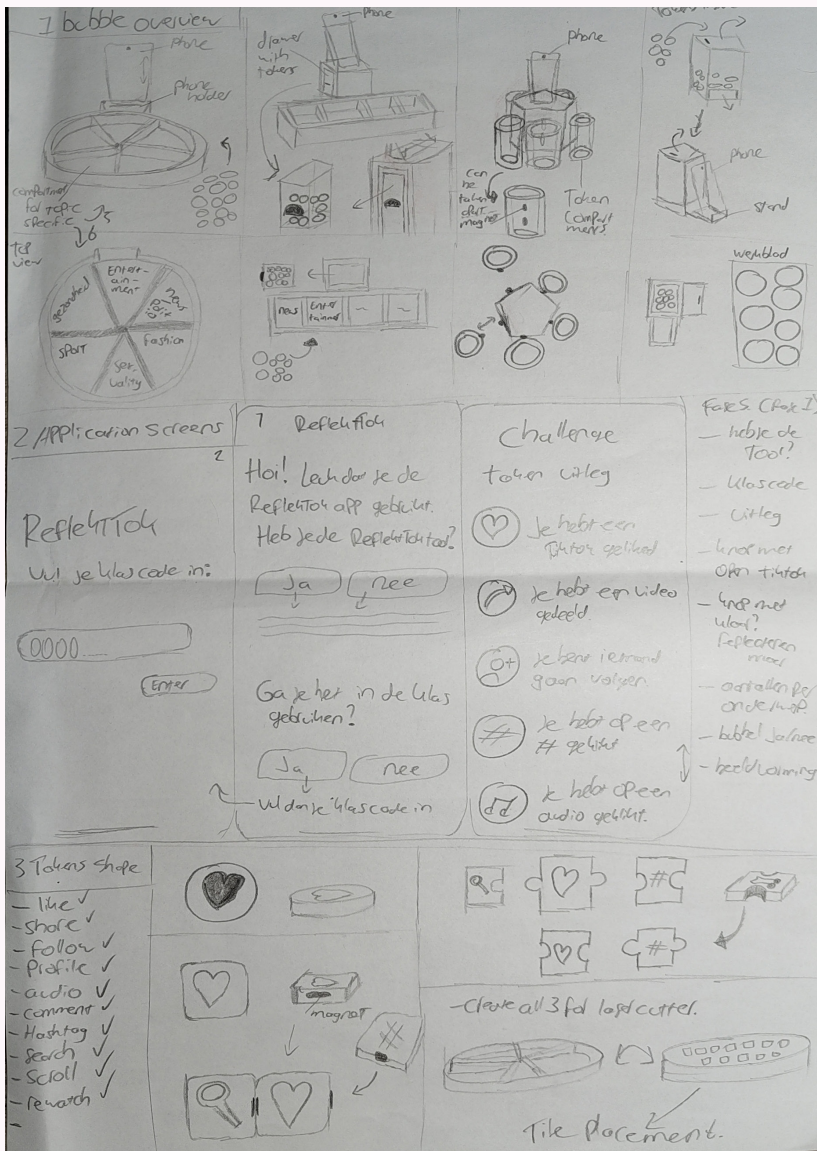 1 bubble overview
phone
phone
holder
compartment
for topic
specific
5
6
drawer
with
tokens
phone
phone
can
be
taken
apart
magnet
Token
compart
ments.
phone
stand
Top
view
gezondheid
Entert-
ain-
ment
news
Fashion
sport
news
Enter
tainment
~
~
werkblad
2 Application Screens
2
ReflekTTok
Vul je klascode in:
0000....
Enter
1 ReflekTTok
Hoi! Leuk dat je de
ReflekTTok app gebruikt.
Heb je de ReflekTTok tool?
Ja
nee
Ga je het in de klas
gebruiken?
Ja
nee
Vul dan je klascode in
Challenge
token uitleg
Je hebt een
Tiktok geliked
Je hebt een video
gedeeld.
Je bent iemand
gaan volgen.
#
Je hebt op een
# geklikt
Je hebt op een
audio geklikt.
Fase 5. (Fase 1)
- heb je de
Tool?
- klascode
- uitleg
- knop met
open tiktok
- knop met
klaar?
reflecteren
- aantallen per
onderwerp.
- bubbel ja/nee
- beeldvorming
3 Tokens shape
- like ✓
- share ✓
- follow ✓
- Profile ✓
- audio ✓
- comment ✓
- Hashtag ✓
- Search ✓
- Scroll ✓
- rewatch ✓
-
magnet
#
#
#
- Create all 3 for lasercutter.
Tile placement.